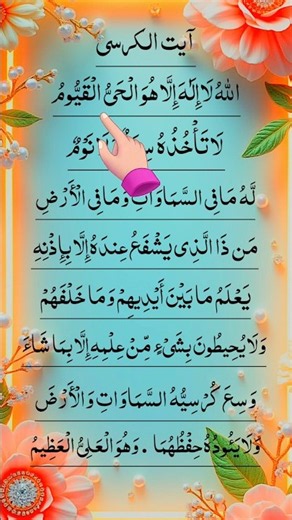 آیت الکرسی
اللهُ لَا إِلٰهَ إِلَّا هُوَ الْحَيُّ الْقَيُّومُ
لَا تَأْخُذُهُ نَوْمٌ
لَّهُ مَا فِي السَّمَاوَاتِ وَمَا فِي الْأَرْضِ
مَن ذَا الَّذِي يَشْفَعُ عِندَهُ إِلَّا بِإِذْنِهِ
يَعْلَمُ مَا بَيْنَ أَيْدِيهِمْ وَمَا خَلْفَهُمْ
وَلَا يُحِيطُونَ بِشَيْءٍ مِّنْ عِلْمِهِ إِلَّا بِمَا شَاءَ
وَسِعَ كُرْسِيُّهُ السَّمَاوَاتِ وَالْأَرْضَ
وَلَا يَئُودُهُ حِفْظُهُمَا . وَهُوَ الْعَلِيُّ الْعَظِيمُ